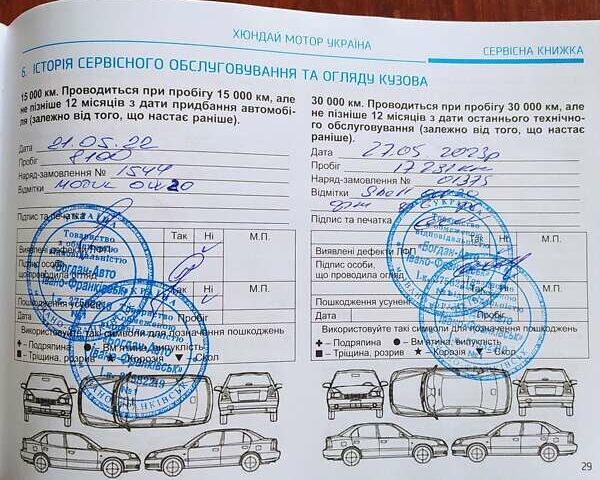 ХЮНДАЙ МОТОР УКРАЇНА
СЕРВІСНА КНИЖКА
6. ІСТОРІЯ СЕРВІСНОГО ОБСЛУГОВУВАННЯ ТА ОГЛЯДУ КУЗОВА
15 000 км. Проводиться при пробігу 15 000 км, але
не пізніше 12 місяців з дати придбання автомобі-
ля (залежно від того, що настає раніше).
Дата 21.05.22
Пробіг 8100
Наряд-замовлення № 1544
Відмітки
Підпис та печатка
Так Ні М.П.
Виявлені дефекти ЛФП
Підпис особи,
що проводила огляд
Пошкодження усунені
Дата Пробіг
Використовуйте такі символи для позначення пошкоджень
+ – Подряпина ● – Вм'ятина, випуклість
■ – Тріщина, розрив ★ – Корозія ▼ – Скол
Товариство
з обмеженою
відповідальністю
"Богдан-Авто
Івано-Франківськ"
30 000 км. Проводиться при пробігу 30 000 км, але
не пізніше 12 місяців з дати останнього технічно-
го обслуговування (залежно від того, що настає
раніше).
Дата 27.05 2023р
Пробіг
Наряд-замовлення № 01375
Відмітки
Підпис та печатка
Так Ні М.П.
Виявлені дефекти ЛФП
Підпис особи,
що проводила огляд
Пошкодження усунені
Дата Пробіг
Використовуйте такі символи для позначення пошкоджень
+ – Подряпина ● – Вм'ятина, випуклість
■ – Тріщина, розрив ★ – Корозія ▼ – Скол
29